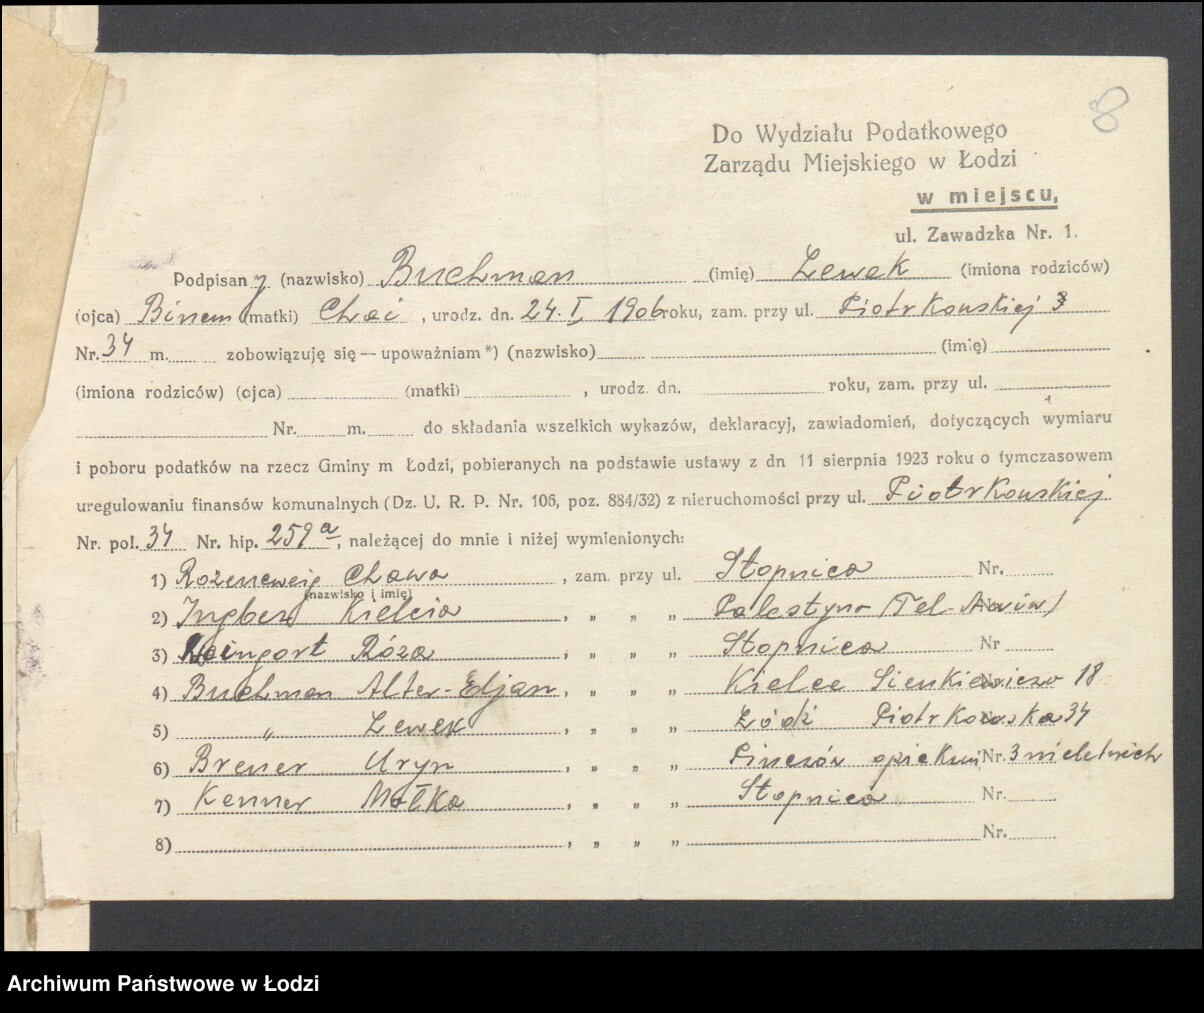 8
Do Wydziału Podatkowego
Zarządu Miejskiego w Łodzi
w miejscu,
ul. Zawadzka Nr. 1.
Podpisany (nazwisko) Buchman (imię) Lewek (imiona rodziców)
(ojca) Binem (matki) Chai, urodz. dn. 24. I, 1906 roku, zam. przy ul. Piotrkowskiej
Nr. 34 m. zobowiązuję się — upoważniam *) (nazwisko) (imię)
(imiona rodziców) (ojca) (matki) , urodz. dn. roku, zam. przy ul.
Nr. m. do składania wszelkich wykazów, deklaracyj, zawiadomień, dotyczących wymiaru
i poboru podatków na rzecz Gminy m Łodzi, pobieranych na podstawie ustawy z dn 11 sierpnia 1923 roku o tymczasowem
uregulowaniu finansów komunalnych (Dz. U. R. P. Nr. 106, poz. 884/32) z nieruchomości przy ul. Piotrkowskiej
Nr. pol. 34 Nr. hip. 259 a, należącej do mnie i niżej wymienionych:
1) Rozencweig Chawa , zam. przy ul. Stopnica Nr.
(nazwisko i imię)
2) Ingber Kielcia , „ „ Palestyna (Tel-Awiw)
3) Wajngort Róża , „ „ Stopnica Nr
4) Buchman Alter-Eljan , „ „ Kielce Sienkiewicza 18
5) „ Lewek , „ „ Łódź Piotrkowska 34
6) Brener Uryn , „ „ Pinczów opiekun Nr. 3 nieletnich
7) Kenner Małka , „ „ Stopnica Nr.
8) , „ „ Nr.
Archiwum Państwowe w Łodzi